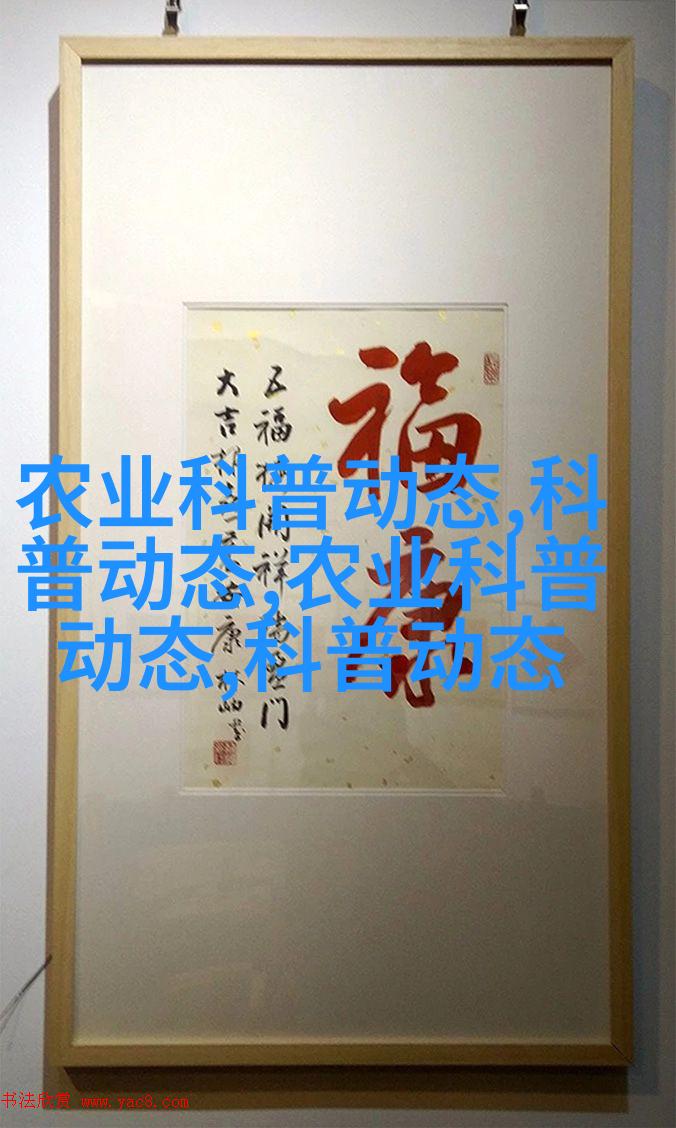 福寿
五福 開祥 門
大吉 康 林岫
农业科普动态,科
普动态,农业科普
动态,科普动态
书法欣赏 www.yac8.com